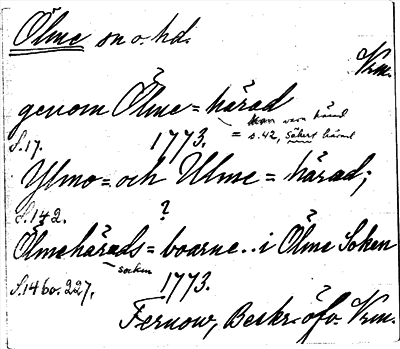 Ölme sn o. hd.
Vrm.
genom Ölme = härad
kan vara härad
= s. 42, säkert härad
S. 17. 1773.
Ylmo = och Ulme = härad;
S. 142. ?
Ölmehärads = boarne.. i Ölme Soken
socken
S. 146 o. 227. 1773.
Fernow, Beskr. öfv. Vrm.